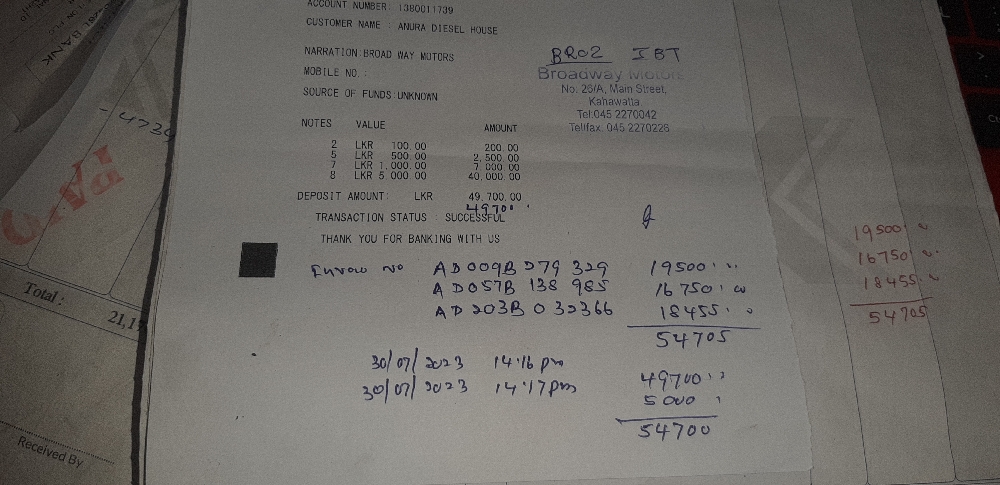 ACCOUNT NUMBER: 1380011739
CUSTOMER NAME : ANURA DIESEL HOUSE
NARRATION:BROAD WAY MOTORS
MOBILE NO. :
SOURCE OF FUNDS:UNKNOWN
BR02 IBT
Broadway Motors
No: 26/A, Main Street,
Kahawatta.
Tel:045 2270042
Tel/fax: 045 2270228
NOTES VALUE AMOUNT
2 LKR 100.00 200.00
5 LKR 500.00 2,500.00
7 LKR 1,000.00 7,000.00
8 LKR 5,000.00 40,000.00
DEPOSIT AMOUNT: LKR 49,700.00
49700
TRANSACTION STATUS : SUCCESSFUL
THANK YOU FOR BANKING WITH US
AD009B 279 329 19500
AD057B 138 985 16750
AD 203B 032366 18455
54705
30/07/2023 14:16 pm 49700
30/07/2023 14:17pm 5000
54700
19500
16750
18455
54705
BANK
-4739
PAID
Total:
21,1
Received By